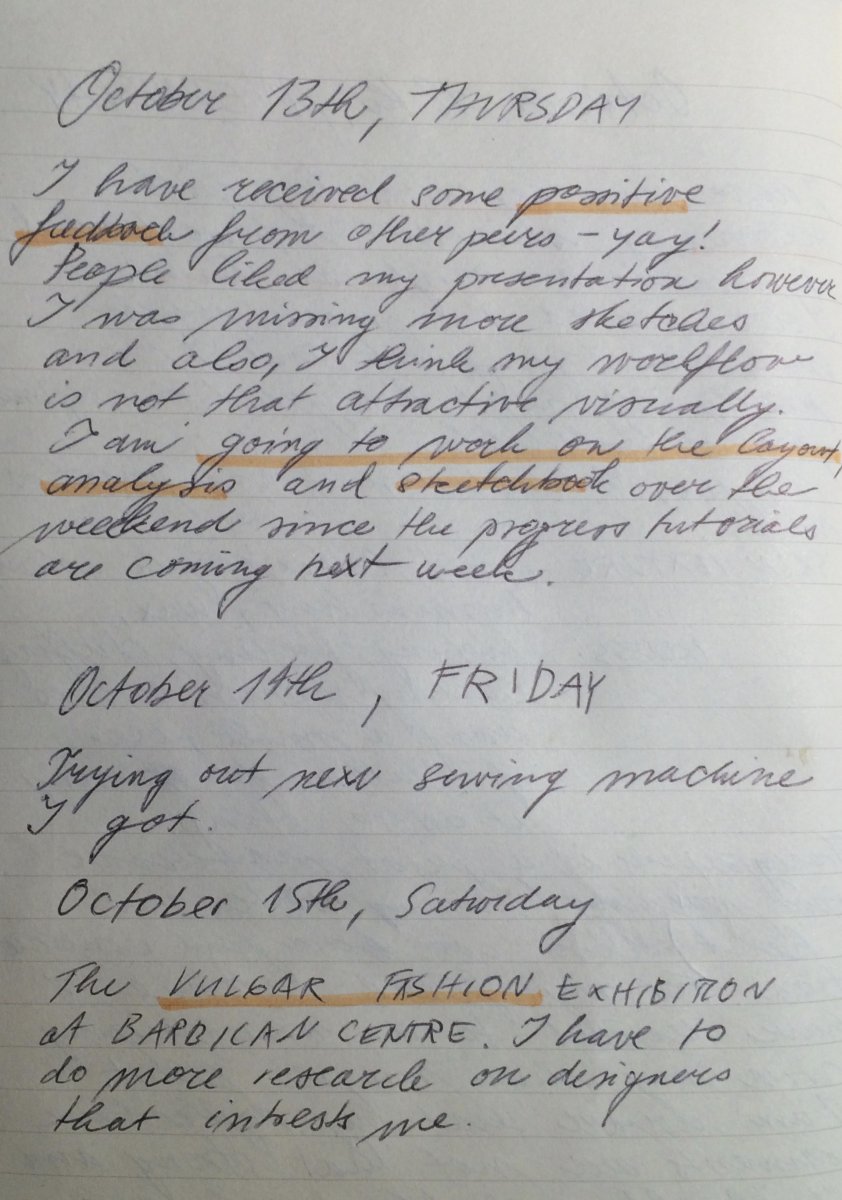 October 13th, THURSDAY
I have received some possitive
feedback from other peers - yay!
People liked my presentation however
I was missing more sketches
and also, I think my workflow
is not that attractive visually.
I am going to work on the layout,
analysis and sketchbook over the
weekend since the progress tutorials
are coming next week.
October 14th, FRIDAY
Trying out new sewing machine
I got.
October 15th, Saturday
The VULGAR FASHION EXHIBITION
at BARBICAN CENTRE. I have to
do more research on designers
that intrests me.